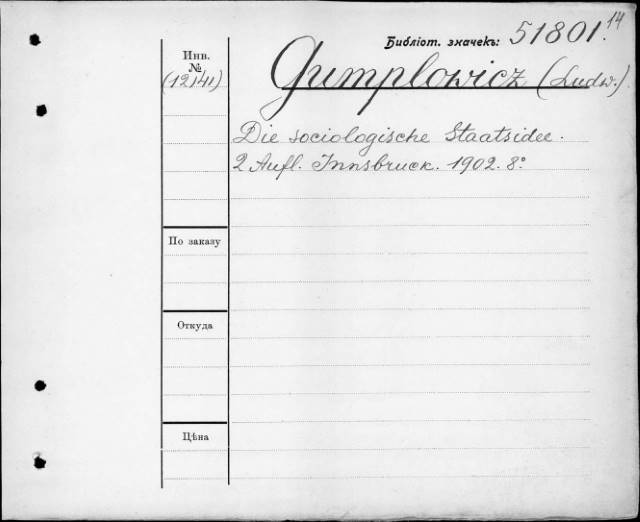 Библіот. значекъ: 51801.14
Инв.
№
(12141)
Gumplowicz (Ludw.)
Die sociologische Staatsidee.
2 Aufl. Innsbruck. 1902. 8°
По заказу
Откуда
Цѣна